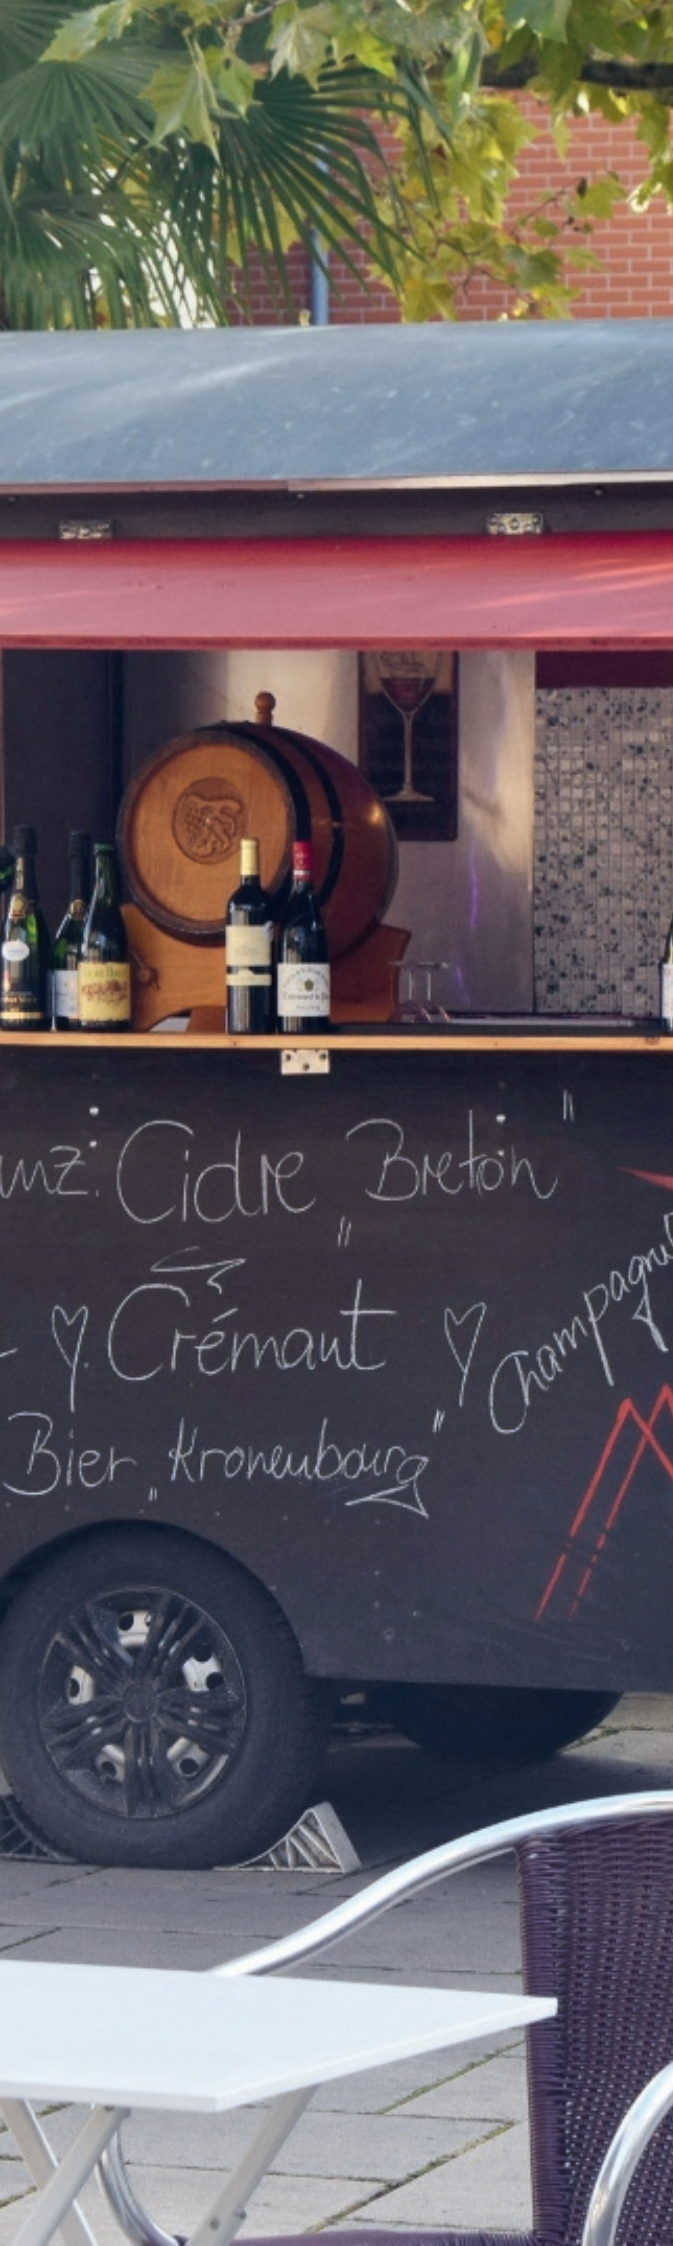 anz. Cidre Breton"
" Crémant
Champagne
Bier „Kronenbourg"